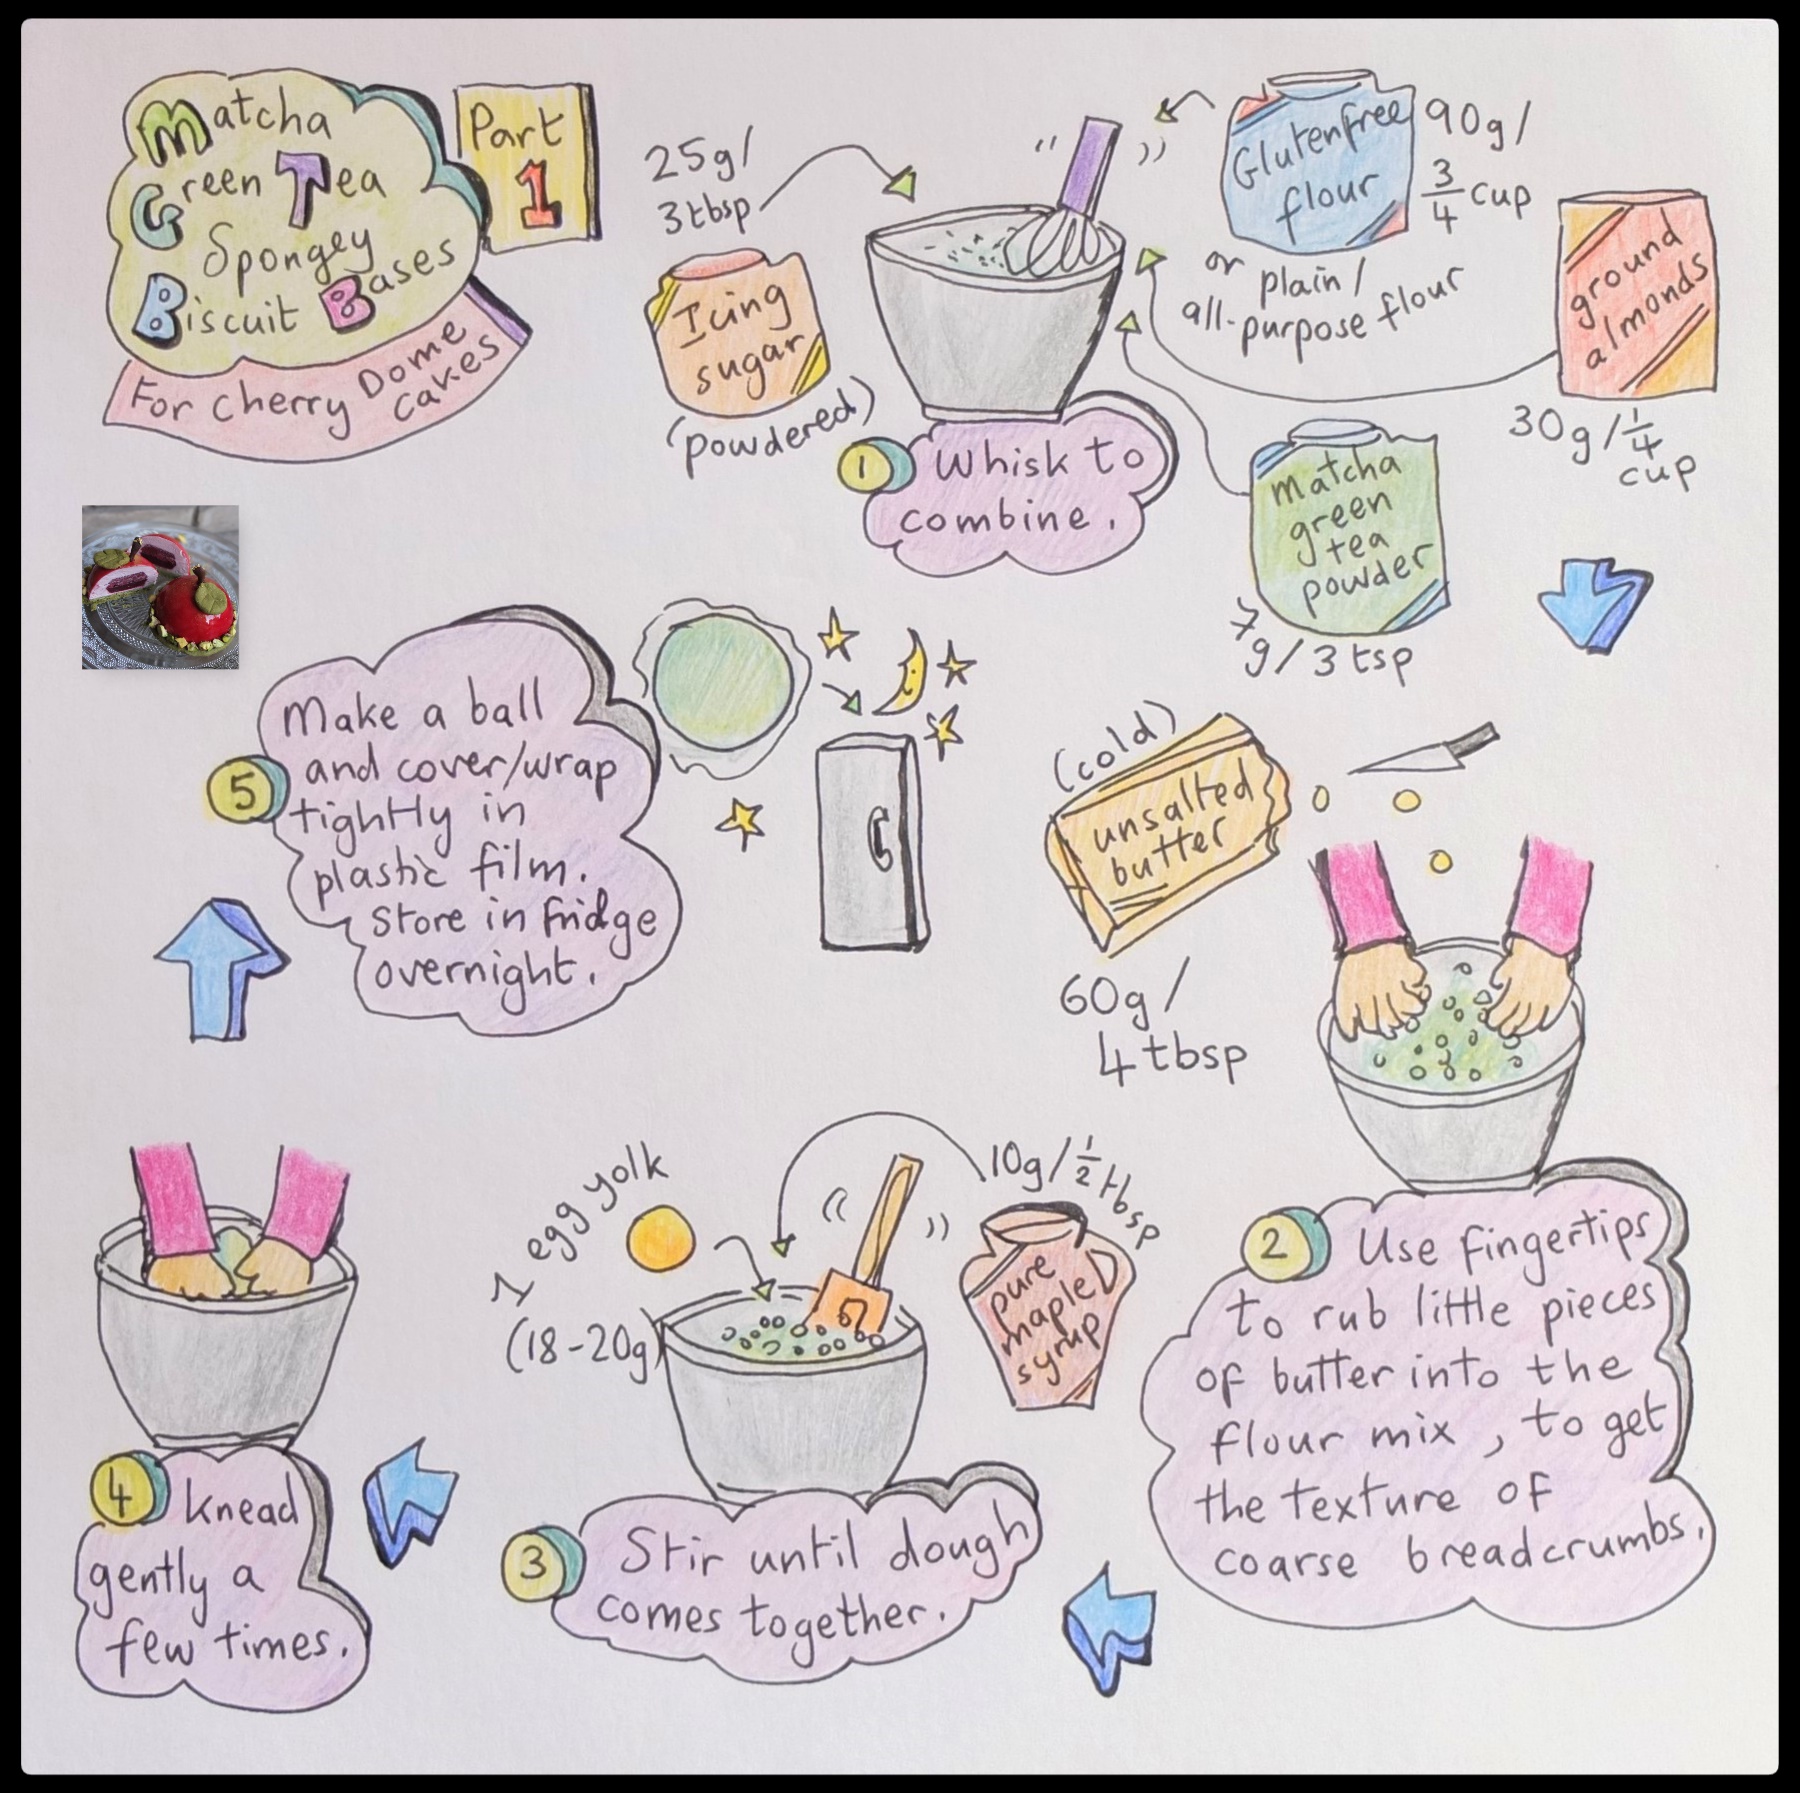 Matcha
Green Tea
Spongey
Biscuit Bases
For Cherry Dome
Cakes
Part
1
25g/
3 tbsp
Icing
sugar
(powdered)
Glutenfree
flour
90g/
3/4 cup
or plain/
all-purpose flour
ground
almonds
30g/1/4
cup
Matcha
green
tea
powder
7g/3 tsp
1 Whisk to
combine.
(cold)
unsalted
butter
60g/
4 tbsp
2 Use fingertips
to rub little pieces
of butter into the
flour mix, to get
the texture of
coarse breadcrumbs.
1 egg yolk
(18-20g)
10g/1/2 tbsp
pure
maple
syrup
3 Stir until dough
comes together.
4 Knead
gently a
few times.
5 Make a ball
and cover/wrap
tightly in
plastic film.
Store in fridge
overnight.